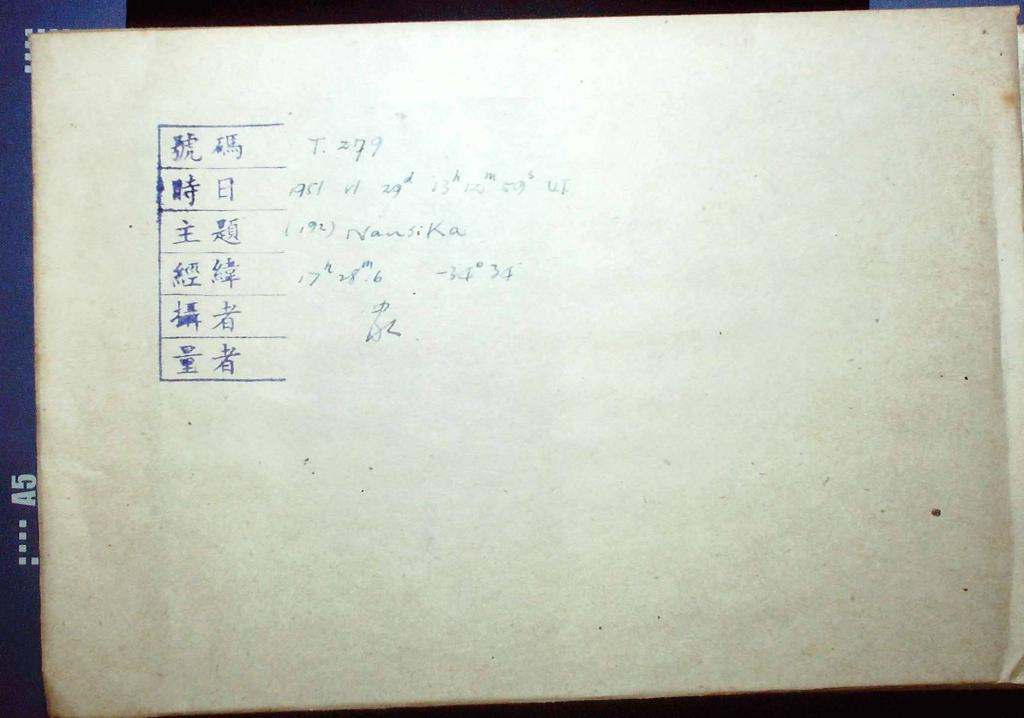 號碼 T. 279
時日 1951 VI 29ᵈ 13ʰ 12ᵐ 59ˢ UT
主題 (192) Nausika
經緯 17ʰ 28ᵐ.6 -34° 34
攝者
量者
A5